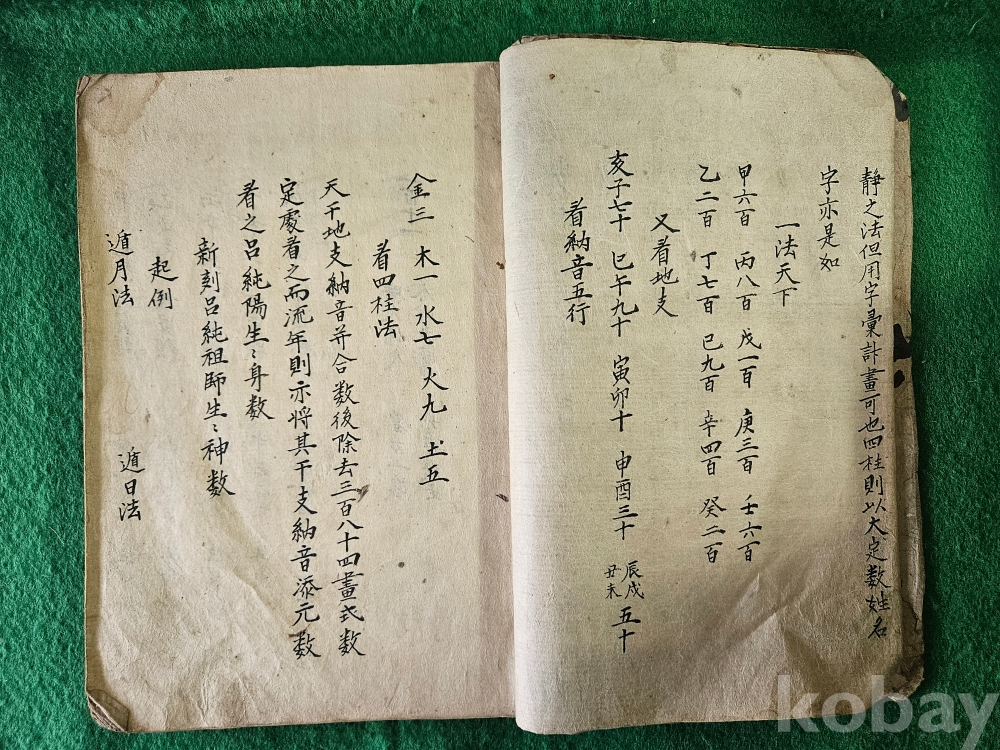 靜之法但用字彙計畫可也四柱則以大定數姓名
字亦是如
一法天下
甲六百 丙八百 戊一百 庚三百 壬六百
乙二百 丁七百 己九百 辛四百 癸二百
又看地支
亥子七十 巳午九十 寅卯十 申酉三十 辰戌丑未五十
看納音五行
金三 木一 水七 火九 土五
看四柱法
天干地支納音并合數後除去三百八十四畫弍數
定處看之而流年則亦將其干支納音添元數
看之呂純陽生〻身數
新刻呂純祖師生〻神數
起例
遁月法 遁日法
kobay